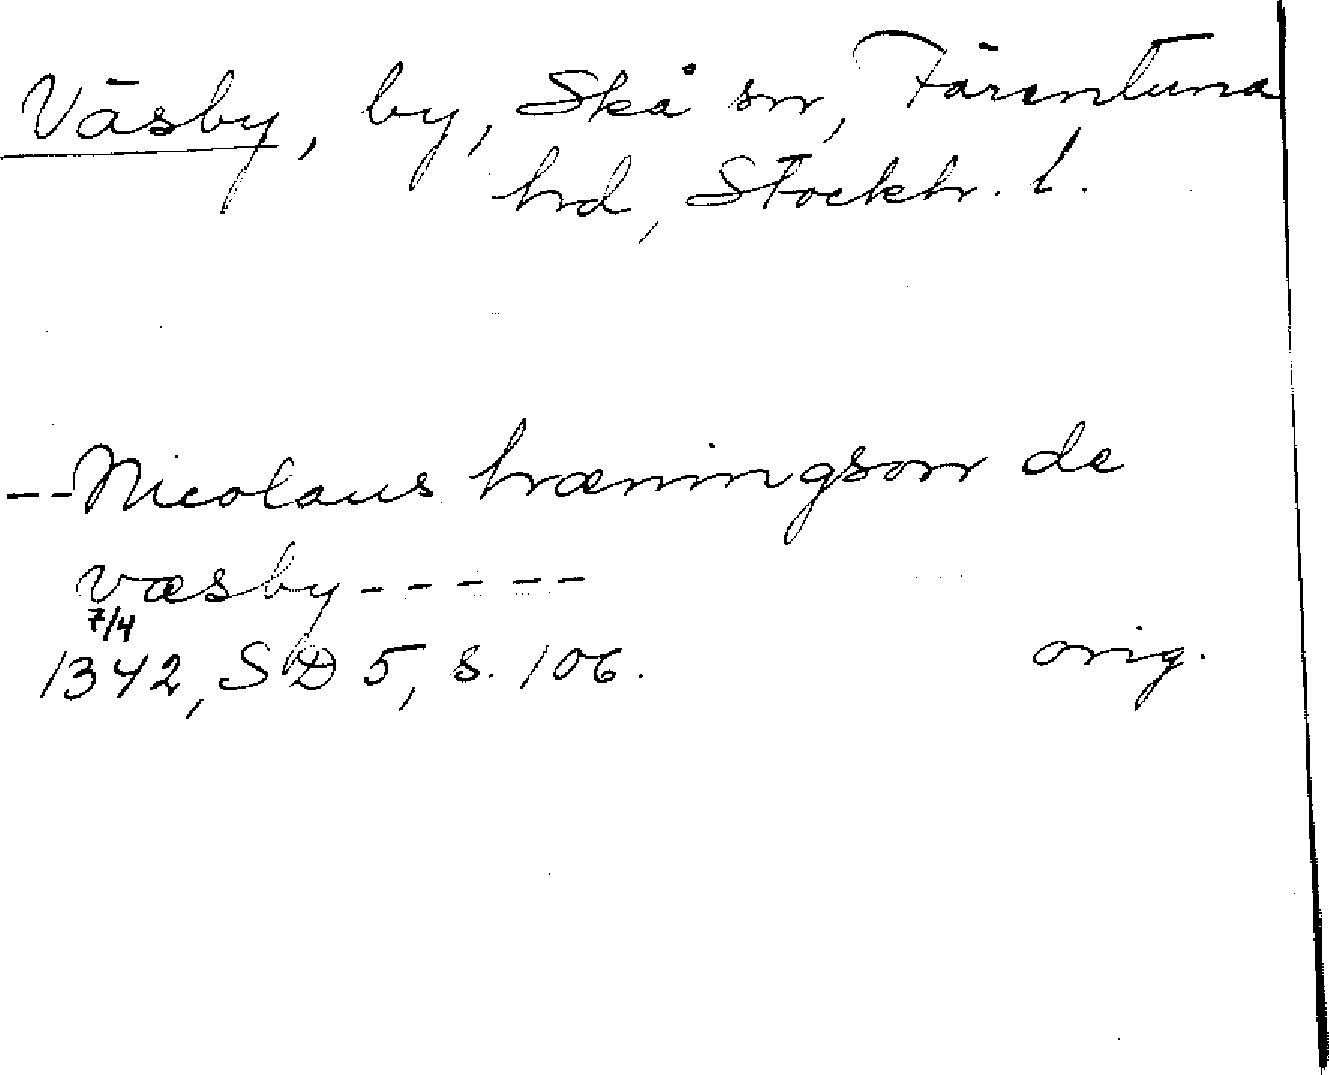 Väsby, by, Skå sn, Färentuna
hd, Stockh. l.
--Nicolaus hræningsson de
væsby-----
7/4
1342, SD 5, s. 106.
orig.